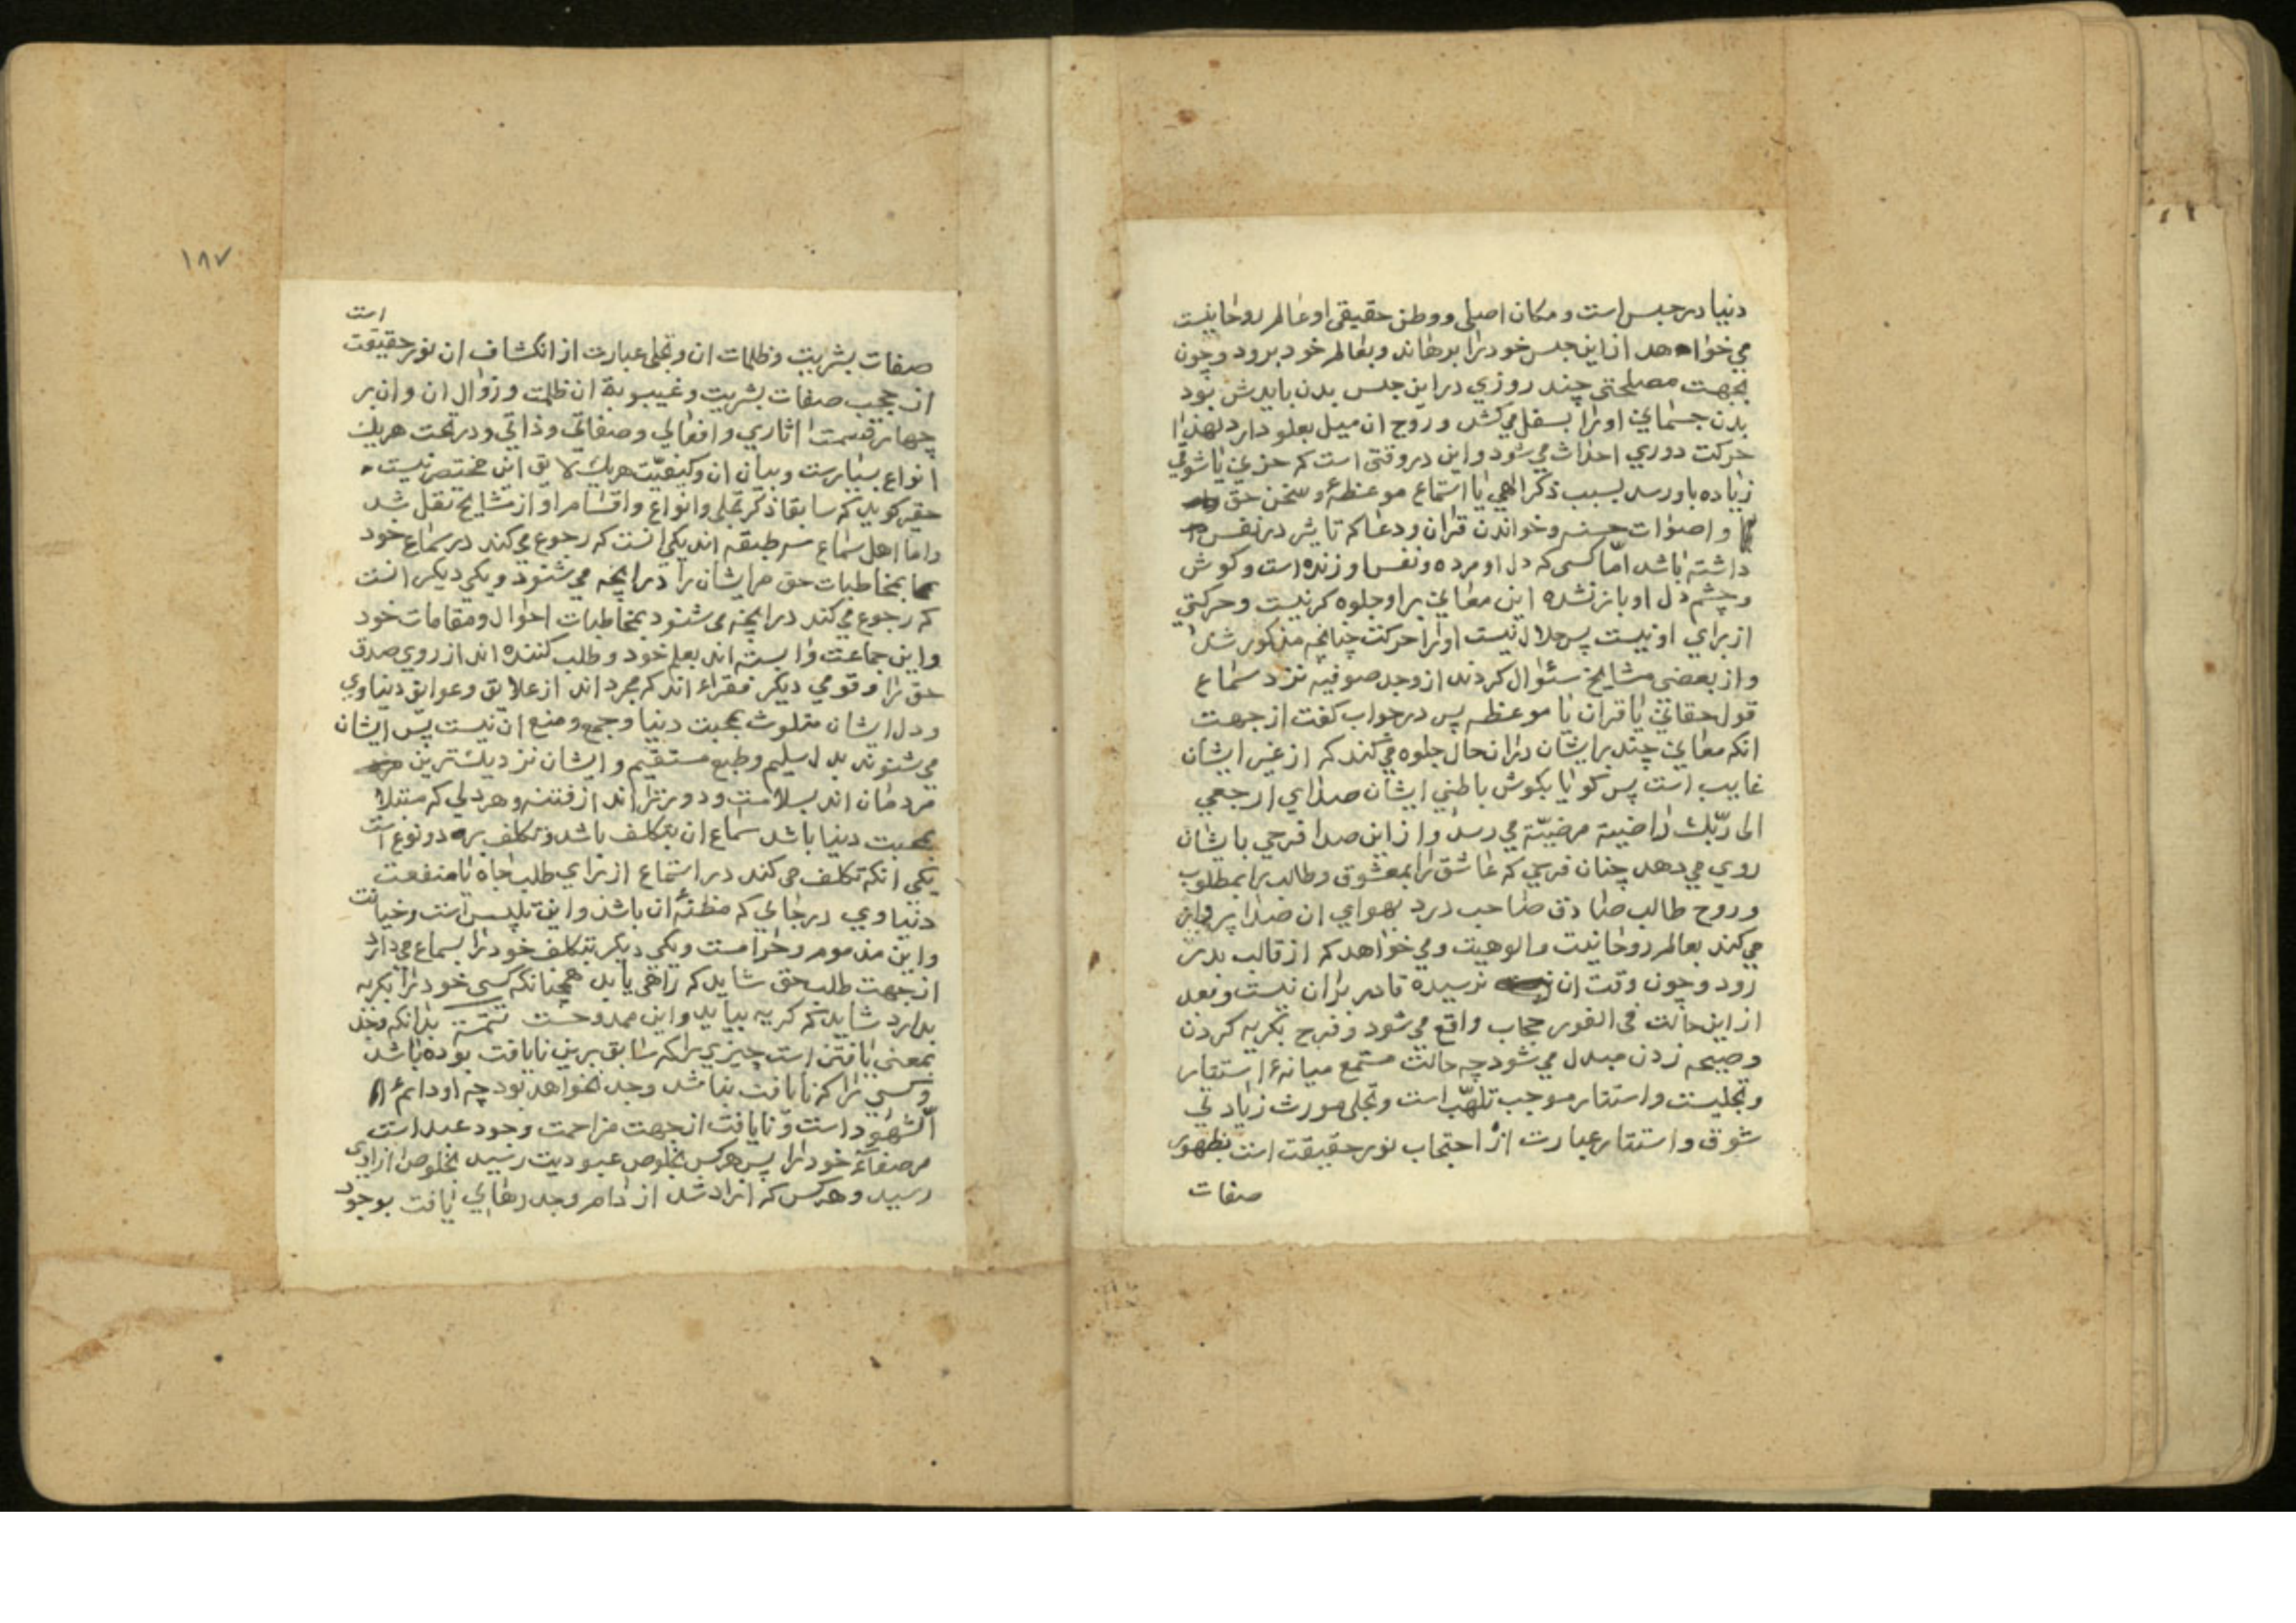 دنیا در حبس است و مکان اصلی و وطن حقیقی او عالم روحانیست
می خواهد از این حبس خود را برهاند و بعالم خود برود و چون
بجهت مصلحتی چند روزي در این حبس بدن بایدش بود
بدن جسمانی او را بسفل می کشد و روح ان میل بعلو دارد لهذا
حرکت دوري احداث می شود و این در وقتی است که حزنی یا شوقی
زیاده باو رسد بسبب ذکر الهی یا استماع موعظهٔ و سخن حق
و اصوات حسنه و خواندن قران و دعا که تاثیر در نفس
داشته باشد امّا کسی که دل او مرده و نفس او زنده است و کوش
و چشم دل او باز نشده این معانی بر او جلوه کر نیست و حرکتی
از براي او نیست پس حلال نیست او را حرکت چنانچه مذکور شد
و از بعضی مشایخ سئوال کردند از وجد صوفیه نزد سماع
قول حقانی یا قران یا موعظه پس در جواب کفت از جهت
انکه معانی چند بر ایشان در ان حال جلوه می کند که از غیر ایشان
غایب است پس کویا بکوش باطنی ایشان صداي ارجعي
الی ربّك راضیة مرضیّة می رسد و از این صدا فرحی بایشان
روي می دهد چنان فرحی که عاشق را بمعشوق و طالب را بمطلوب
و روح طالب صادق صاحب درد بهواي ان صدا پرواز
می کند بعالم روحانیت و الوهیت و می خواهد که از قالب بدر
رود و چون وقت ان نرسیده قادر بران نیست و بعد
از این حالت فی الفور حجاب واقع می شود و فرح بکریه کردن
و صیحه زدن مبدل می شود چه حالت مستمع میانهٔ استتار
و تجلیست و استتار موجب تلهّب است و تجلی مورث زیادتی
شوق و استتار عبارت از احتجاب نور حقیقت است بظهور
صفات
۱۸۷
صفات بشریت و ظلمات ان و تجلی عبارت از انکشاف ان نور حقیقت است
از حجب صفات بشریت و غیبوبة ان ظلمت و زوال ان و ان بر
چهار قسمت اثاري و افعالی و صفاتی و ذاتی و در تحت هریك
انواع بسیارست و بیان ان و کیفیّت هریك لایق این مختصر نیست
حقیر کوید که سابقا ذکر تجلی و انواع و اقسام او از مشایخ نقل شد
و اما اهل سماع سه طبقه اند یکی انست که رجوع می کند در سماع خود
بمخاطبات حق مر ایشان را در انچه می شنود و یکی دیکر انست
که رجوع می کند در انچه می شنود بمخاطبات احوال و مقامات خود
و این جماعت وابسته اند بعلم خود و طلب کننده اند از روي صدق
حق را و قومی دیکر فقراء اند که مجرد اند از علایق و عوایق دنیاوي
و دل ایشان متلوث بمحبت دنیا و جمع و منع ان نیست پس ایشان
می شنوند بدل سلیم و طبع مستقیم و ایشان نزدیکترین
مردمان اند بسلامت و دورتر اند از فتنه و هر دلی که مبتلا
بمحبت دنیا باشد سماع ان بتکلف باشد و تکلف بر دو نوع است
یکی انکه تکلف می کند در استماع از براي طلب جاه یا منفعت
دنیاوي در جایی که مظنهٔ ان باشد و این تلبیس است و خیانت
و این مذموم و حرامست و یکی دیکر بتکلف خود را بسماع می دارد
از جهت طلب حق شاید که راهی یابد همچنانکه کسی خود را بکریه
بدارد شاید که کریه بیاید و این ممدوحست تتمّة بدانکه وجد
بمعنی یافتن است چیزي را که سابق برین نایافت بوده باشد
و کسی را که نایافت نباشد وجد نخواهد بود چه او دایم
الشّهود است و نایافت از جهت مزاحمت وجود عبد است
مر صفات خود را پس هر کس بخلوص عبودیت رسید بخلوص ازادی
رسید و هر کس که ازاد شد از دام وجد رهایی یافت بوجود